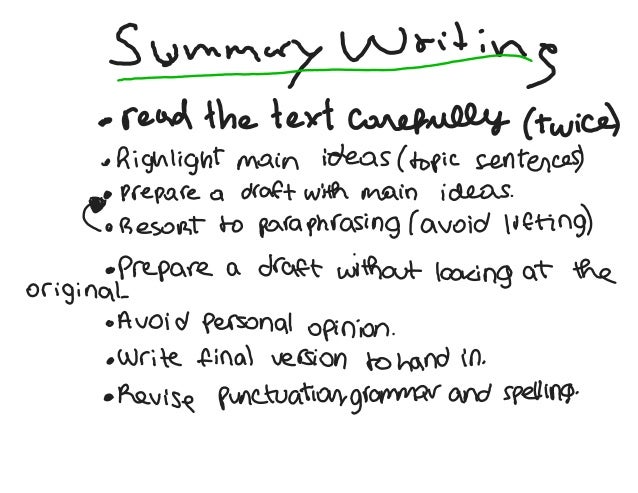 Summary Writing
• read the text carefully (twice)
• Highlight main ideas (topic sentences)
• Prepare a draft with main ideas.
• Resort to paraphrasing (avoid lifting)
• Prepare a draft without looking at the
original
• Avoid personal opinion.
• Write final version to hand in.
• Revise punctuation, grammar and spelling.